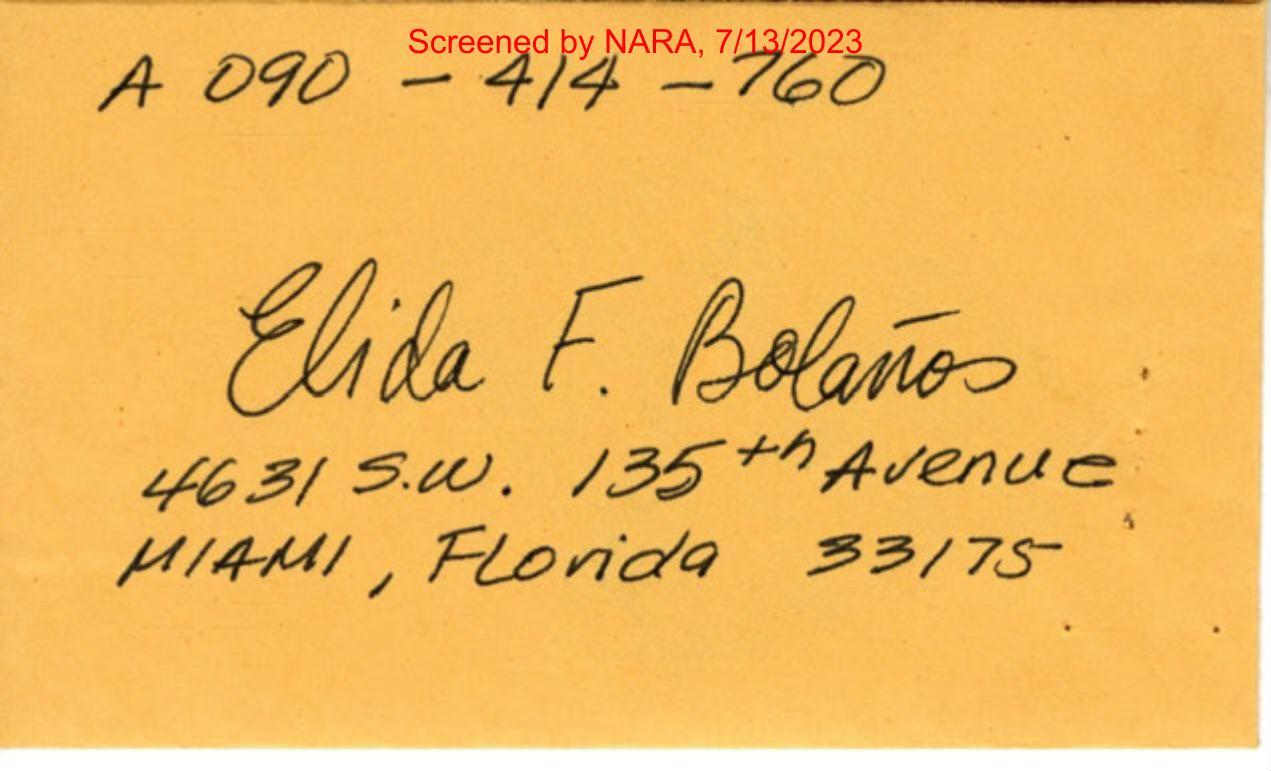 Screened by NARA, 7/13/2023
A 090 - 414 - 760
Elida F. Bolaños
4631 S.W. 135th Avenue
MIAMI, FLorida 33175